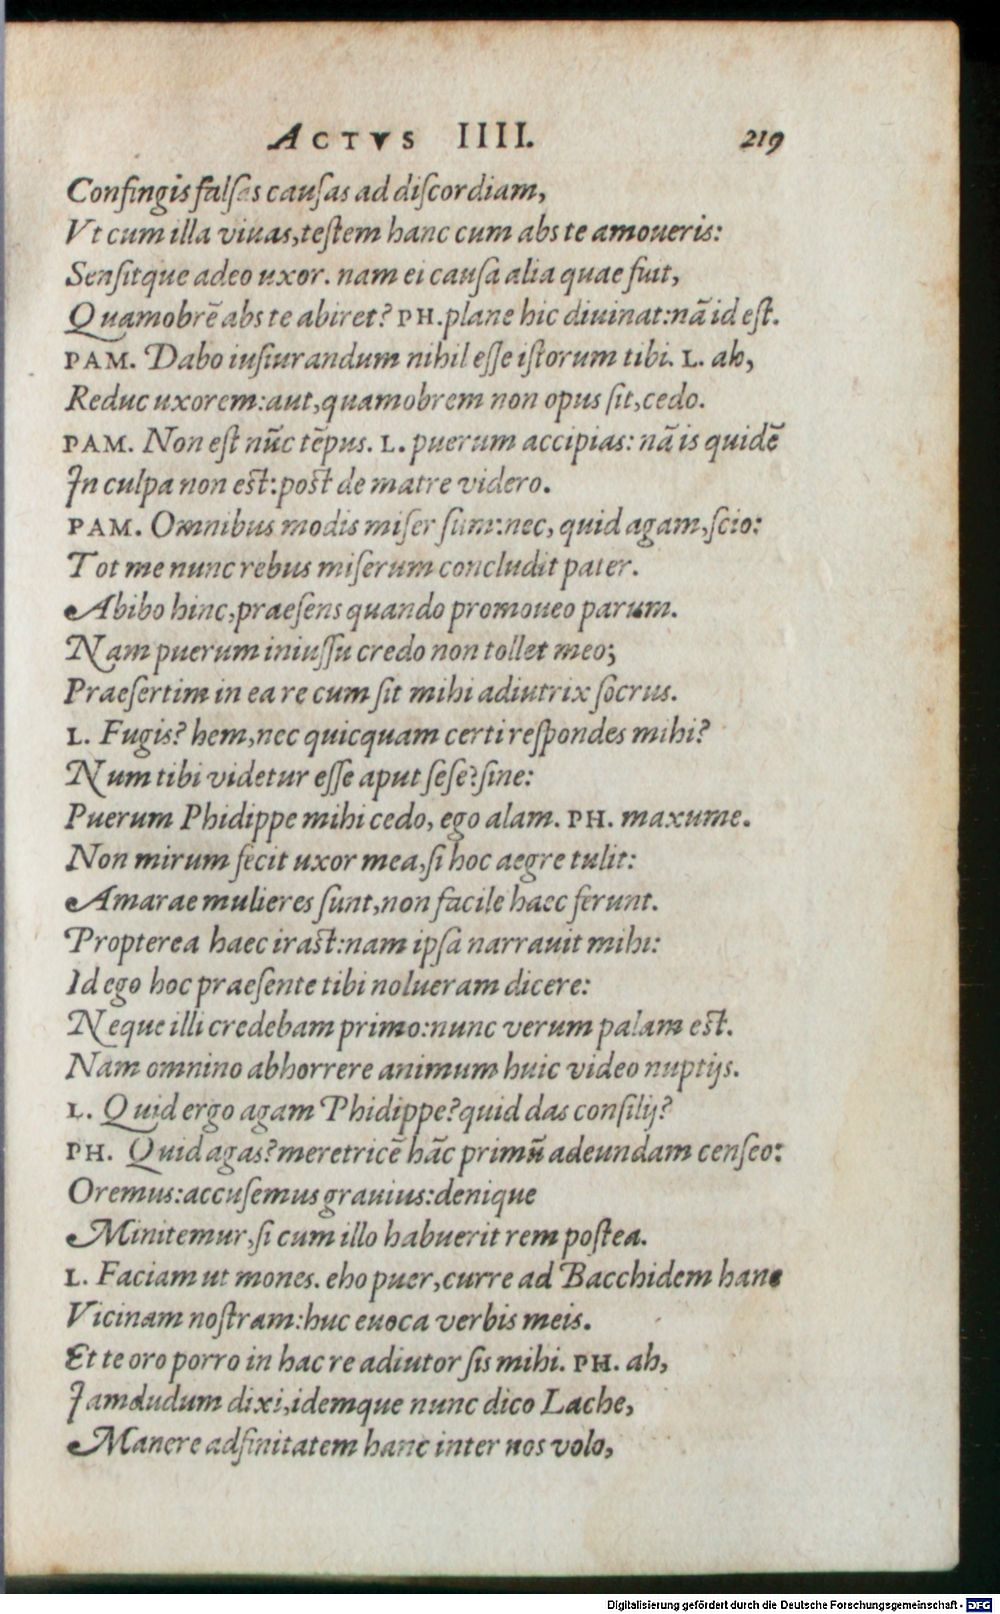 ACTVS IIII. 219
Confingis falsas causas ad discordiam,
Vt cum illa viuas, testem hanc cum abs te amoueris:
Sensitque adeo uxor. nam ei causa alia quae fuit,
Quamobrē abs te abiret? PH. plane hic diuinat: nā id est.
PAM. Dabo iusiurandum nihil esse istorum tibi. L. ah,
Reduc uxorem: aut, quamobrem non opus sit, cedo.
PAM. Non est nūc tēpus. L. puerum accipias: nā is quidē
In culpa non est: post de matre videro.
PAM. Omnibus modis miser sum: nec, quid agam, scio:
Tot me nunc rebus miserum concludit pater.
Abibo hinc, praesens quando promoueo parum.
Nam puerum iniussu credo non tollet meo;
Praesertim in ea re cum sit mihi adiutrix socrus.
L. Fugis? hem, nec quicquam certi respondes mihi?
Num tibi videtur esse aput sese? sine:
Puerum Phidippe mihi cedo, ego alam. PH. maxume.
Non mirum fecit uxor mea, si hoc aegre tulit:
Amarae mulieres sunt, non facile haec ferunt.
Propterea haec irast: nam ipsa narrauit mihi:
Id ego hoc praesente tibi nolueram dicere:
Neque illi credebam primo: nunc verum palam est.
Nam omnino abhorrere animum huic video nuptijs.
L. Quid ergo agam Phidippe? quid das consilij?
PH. Quid agas? meretricē hāc primū adeundam censeo:
Oremus: accusemus grauius: denique
Minitemur, si cum illo habuerit rem postea.
L. Faciam ut mones. eho puer, curre ad Bacchidem hanc
Vicinam nostram: huc euoca verbis meis.
Et te oro porro in hac re adiutor sis mihi. PH. ah,
Iamdudum dixi, idemque nunc dico Lache,
Manere adfinitatem hanc inter nos volo,
Digitalisierung gefördert durch die Deutsche Forschungsgemeinschaft - DFG